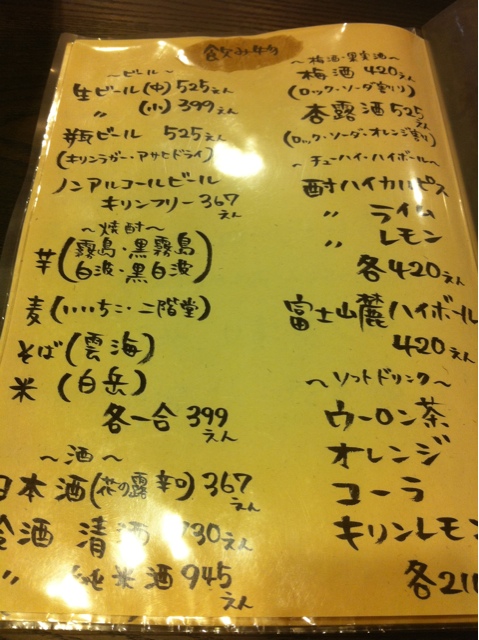 飲み物
～ビール～
生ビール(中)525えん
〃 (小)399えん
瓶ビール 525えん
(キリンラガー・アサヒドライ)
ノンアルコールビール
キリンフリー367えん
～焼酎～
芋(霧島・黒霧島
白波・黒白波)
麦(いいちこ・二階堂)
そば(雲海)
米(白岳)
各一合 399えん
～酒～
日本酒(花の露 辛口)367えん
酒 清酒 730えん
〃 純米酒945えん
～梅酒・果実酒～
梅酒 420えん
(ロック・ソーダ割り)
杏露酒525えん
(ロック・ソーダ・オレンジ割り)
～チューハイ・ハイボール～
酎ハイカルピス
〃 ライム
〃 レモン
各420えん
富士山麓ハイボール
420えん
～ソフトドリンク～
ウーロン茶
オレンジ
コーラ
キリンレモン
各210